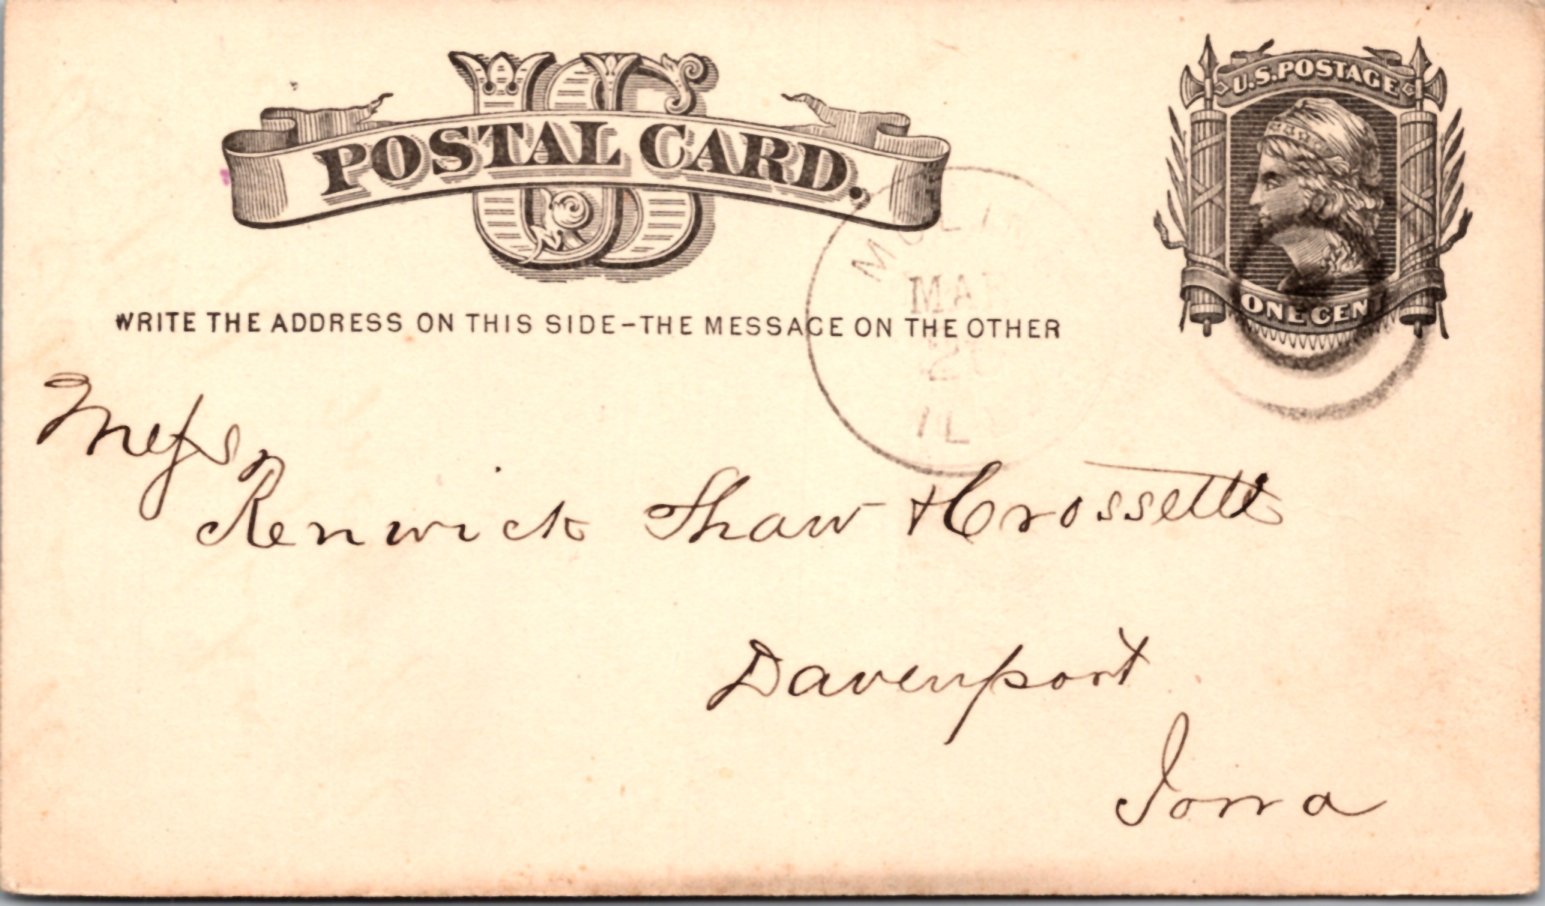 US
POSTAL CARD.
U.S. POSTAGE
ONE CENT
WRITE THE ADDRESS ON THIS SIDE-THE MESSAGE ON THE OTHER
MAR
ILL
Messrs
Renwick Shaw & Crossette
Davenport
Iowa